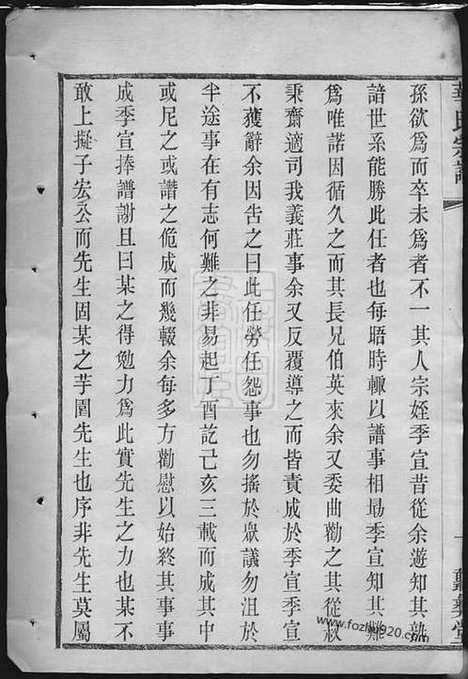 孫欲為而卒未為者不一其人宗姪季宣昔從余遊知其熟
諳世系能勝此任者也每晤時輒以譜事相勗季宣知其難
為唯諾因循久之而其長兄伯英來余又委曲勸之其從叔
秉齋適司我義莊事余又反覆導之而皆責成於季宣季宣
不獲辭余因告之曰此任勞任怨事也勿搖於眾議勿沮於
半途事在有志何難之非易起丁酉訖己亥三載而成其中
或尼之或譖之佹成而幾輟余每多方勸慰以始終其事事
成季宣捧譜謝且曰某之得勉力為此實先生之力也某不
敢上擬子宏公而先生固某之芋園先生也序非先生莫屬
www.fozhu920.com